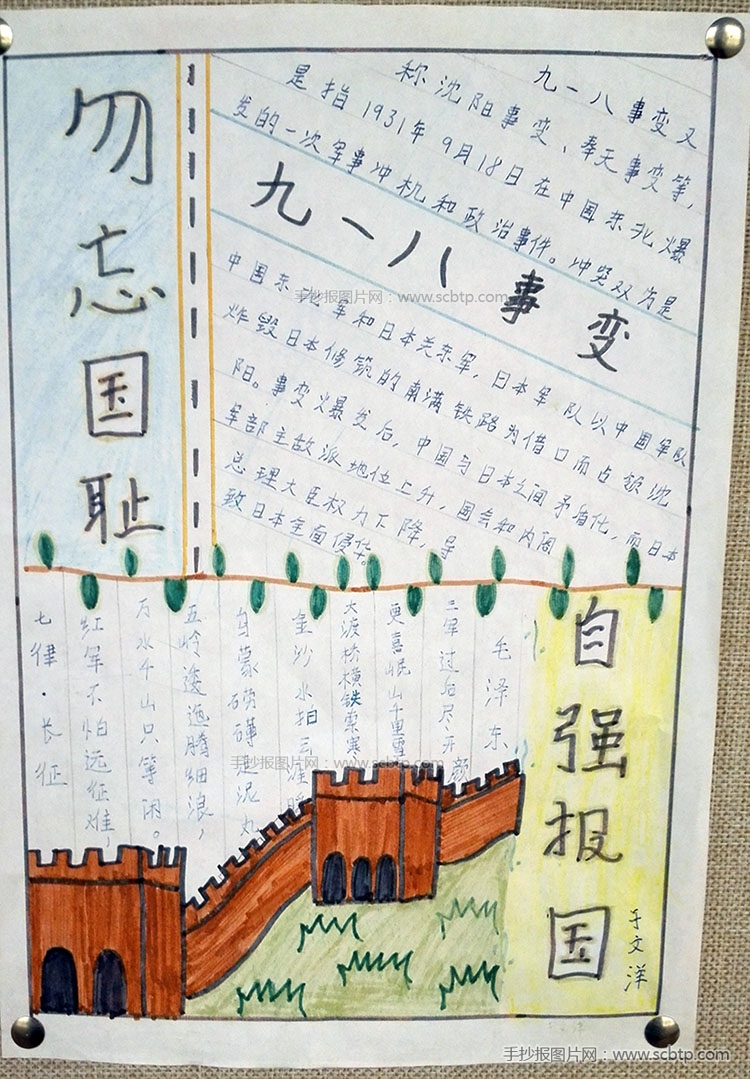 勿忘国耻
九一八事变又
称沈阳事变、奉天事变等,
是指1931年9月18日在中国东北爆
发的一次军事冲机和政治事件。冲突双方是
九一八事变
中国东北军和日本关东军,日本军队以中国军队
炸毁日本修筑的南满铁路为借口而占领沈
阳。事变爆发后,中国与日本之间矛盾化,而日本
军部主故派地位上升,国会和内阁
总理大臣权力下降,导
致日本全面侵华。
手抄报图片网:www.scbtp.com
七律·长征
红军不怕远征难,
万水千山只等闲。
五岭逶迤腾细浪,
乌蒙磅礴走泥丸
金沙水拍云崖暖
大渡桥横铁索寒
更喜岷山千里雪
三军过后尽开颜
毛泽东、
手抄报图片网:www.scbtp.com
自强报国
于文洋
手抄报图片网:www.scbtp.com